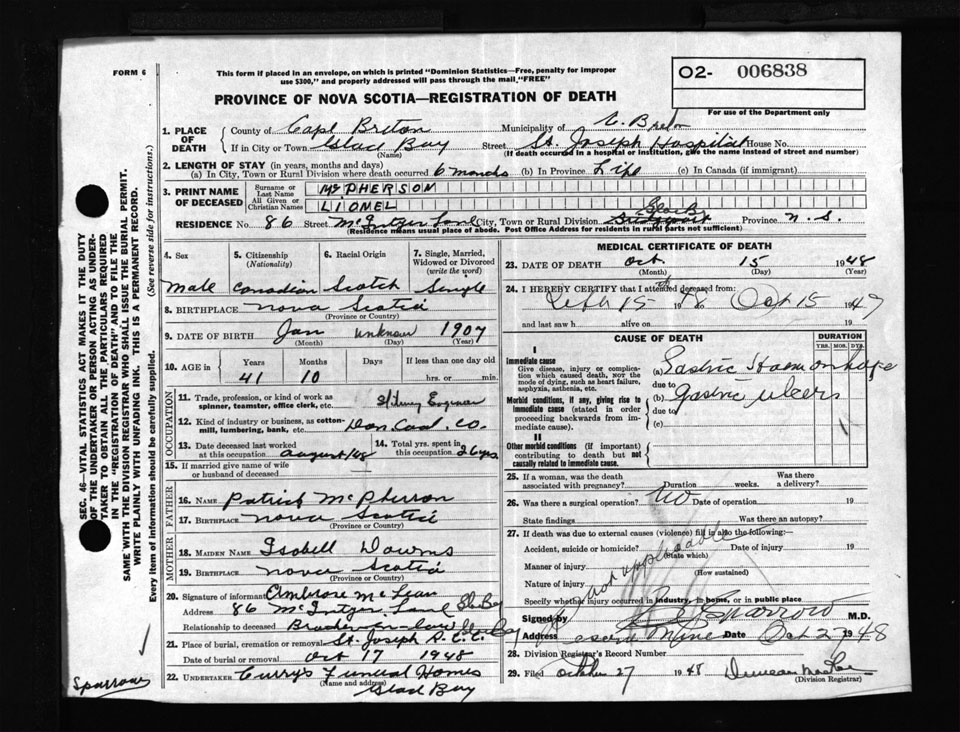 FORM 6
This form if placed in an envelope, on which is printed "Dominion Statistics—Free, penalty for improper
use $300," and properly addressed will pass through the mail "FREE"
O2- 006838
For use of the Department only
PROVINCE OF NOVA SCOTIA—REGISTRATION OF DEATH
1. PLACE OF DEATH
County of Cape Breton Municipality of C. Breton
If in City or Town Glace Bay Street St. Joseph Hospital House No.
(Name) (If death occurred in a hospital or institution, give the name instead of street and number)
2. LENGTH OF STAY (in years, months and days)
(a) In City, Town or Rural Division where death occurred 6 months (b) In Province Life (c) In Canada (if immigrant)
3. PRINT NAME OF DECEASED
Surname or Last Name McPHERSON
All Given or Christian Names LIONEL
RESIDENCE No. 86 Street Lane City, Town or Rural Division Province N. S.
(Residence means usual place of abode. Post Office Address for residents in rural parts not sufficient)
4. Sex 5. Citizenship (Nationality) 6. Racial Origin 7. Single, Married, Widowed or Divorced (write the word)
Male Canadian Scotch Single
8. BIRTHPLACE Nova Scotia
(Province or Country)
9. DATE OF BIRTH Jan unknown 1907
(Month) (Day) (Year)
10. AGE in Years Months Days If less than one day old
41 10 hrs. or min.
OCCUPATION
11. Trade, profession, or kind of work as
spinner, teamster, office clerk, etc. Engineer
12. Kind of industry or business, as cotton-
mill, lumbering, bank, etc. Dom Coal Co.
13. Date deceased last worked
at this occupation August/48
14. Total yrs. spent in
this occupation 26 yrs
15. If married give name of wife
or husband of deceased
FATHER
16. NAME Patrick McPherson
17. BIRTHPLACE Nova Scotia
(Province or Country)
MOTHER
18. MAIDEN NAME Isobell Downs
19. BIRTHPLACE Nova Scotia
(Province or Country)
20. Signature of informant Ambrose McLean
Address 86 Lane Gl Bay
Relationship to deceased Brother-in-law
21. Place of burial, cremation or removal St. Joseph R.C.C.
Date of burial or removal Oct 17 1948
22. UNDERTAKER Curry's Funeral Homes
(Name and address)
Glace Bay
MEDICAL CERTIFICATE OF DEATH
23. DATE OF DEATH Oct. 15 1948
(Month) (Day) (Year)
24. I HEREBY CERTIFY that I attended deceased from:
Sept 15th 48 to Oct 15 1947
and last saw h alive on 19
CAUSE OF DEATH
DURATION
YRS. MOS. DYS.
I
Immediate cause
Give disease, injury or complica-
tion which caused death, not the
mode of dying, such as heart failure,
asphyxia, asthenia, etc.
(a) Gastric Hammorrhage
due to
Morbid conditions, if any, giving rise to
immediate cause (stated in order
proceeding backwards from im-
mediate cause).
(b) Gastric ulcers
due to
(c)
II
Other morbid conditions (if important)
contributing to death but not
causally related to immediate cause.
25. If a woman, was the death
associated with pregnancy? Duration weeks. Was there a delivery?
26. Was there a surgical operation? No Date of operation 19
State findings Was there an autopsy?
27. If death was due to external causes (violence) fill in also the following:—
Accident, suicide or homicide? Date of injury 19
(State which)
Manner of injury
(How sustained)
Nature of injury
Not applicable
Specify whether injury occurred in industry, in home, or in public place
Signed by Sparrow M.D.
Address Mine Date Oct 27 1948
28. Division Registrar's Record Number
29. Filed October 27 1948 Duncan
(Division Registrar)
SEC. 46—VITAL STATISTICS ACT MAKES IT THE DUTY
OF THE UNDERTAKER OR PERSON ACTING AS UNDER-
TAKER TO OBTAIN ALL THE PARTICULARS REQUIRED
IN THE "REGISTRATION OF DEATH" AND TO FILE THE
SAME WITH THE DIVISION REGISTRAR WHO SHALL ISSUE THE BURIAL PERMIT.
WRITE PLAINLY WITH UNFADING INK. THIS IS A PERMANENT RECORD.
Every item of information should be carefully supplied. (See reverse side for instructions.)
Sparrow